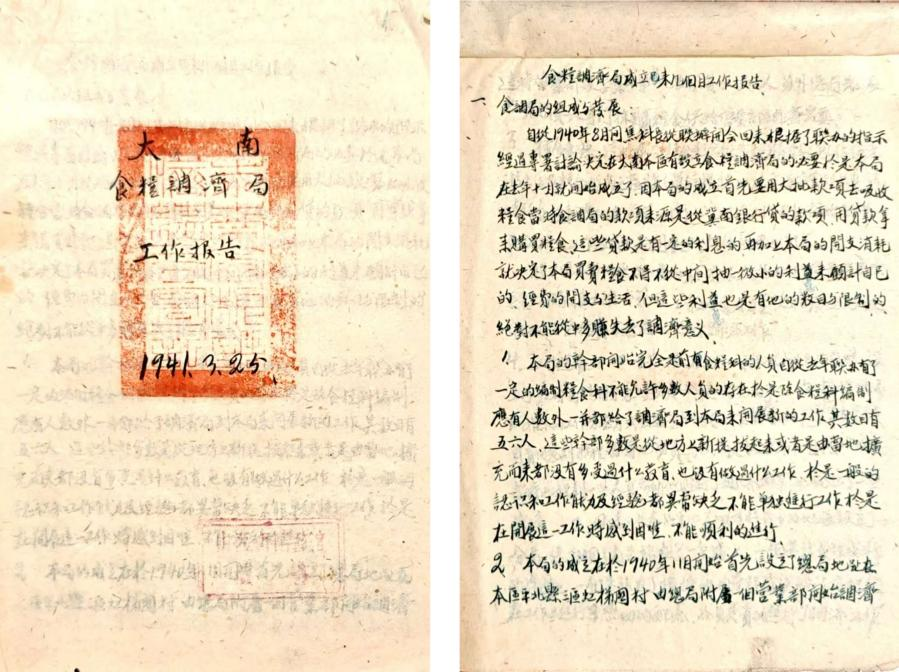 太南
食糧調濟局
工作报告
1941.3.25
食糧調濟局成立以来几個月工作报告
一 食調局的组成与發展:
自從1940年8月间焦科長從联辦開会回来根據了联办的指示
經过專署討論决定在太南本區有設立食糧調濟局的必要於是本局
在去年十月就開始成立了因本局的成立首先要用大批款項去吸收
糧食當時食調局的款項来源是從冀南銀行贷的款項用贷款拿
来購買糧食、这些贷款是有一定的利息的再加上本局的開支消耗
就决定了本局買賣糧食不得不從中间抽一微小的利益来顧計自己
的經費的開支与生活,但這些利益也是有他的数目与限制的
絕對不能從中多賺失去了調濟意义
1、本局的幹部開始完全是前有食糧科的人員自從去年联办有了
一定的編制糧食科不能允許多数人員的存在於是除食糧科編制
應有人数外一并都給了調濟局到本局来開展新的工作其数目有
五六人 這些幹部多數是從地方上新提拔起来或者是由當地擴
充而来都没有多受過什么教育,也没有做过什么工作 於是一般的
認識和工作能力及经验都異常缺乏不能單独進行工作於是
在開展這一工作時感到困难,不能順利的進行
2、本局的成立在於1940年11月開始首先設立了總局地址在
本區平北縣 村由總局附屬一個营業部開始調濟